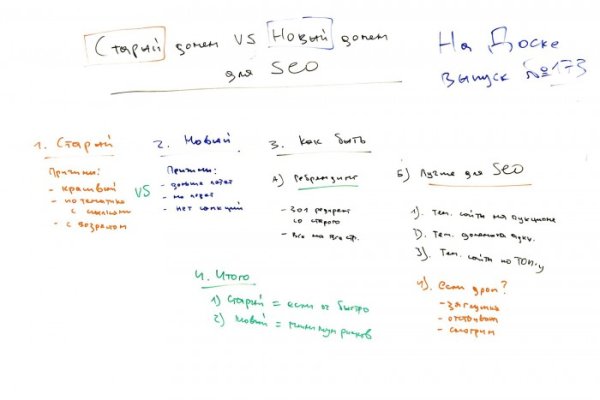 Старый домен VS Новый домен
для SEO
На Доске
выпуск №173
1. Старый
Причины:
- красивый
- по тематике
с ссылками
- с возрастом
VS
2. Новый
Причины:
- дольше
- нет санкций
3. Как быть
А) Ребрендинг
- 301 редирект
со старого
- Все на все стр.
Б) Лучше для SEO
1). Тем. сайты на аукционе
2). Тем. домена аукц.
3). Тем. сайты по ТОП-у
4). Если дроп?
- загрузка
- отстаиваем
- смотрим
4. Итого
1) Старый = если оч быстро
2) Новый = минимум рисков